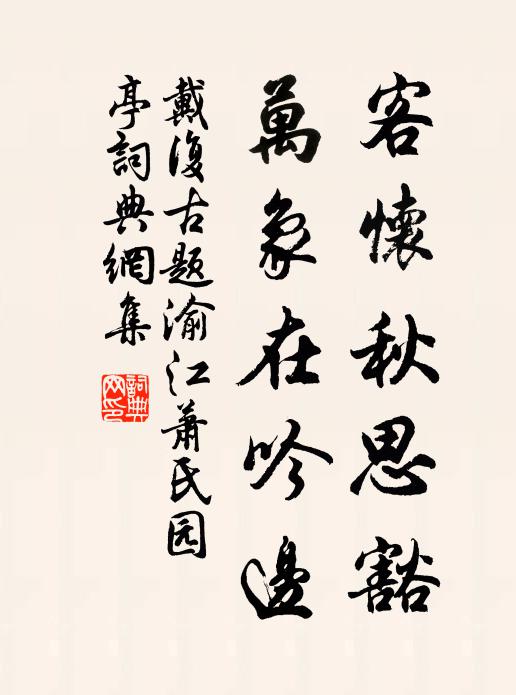 客懷秋思豁
萬象在吟邊
戴復古題渝江蕭氏园
亭詞典網集
詞典
网印